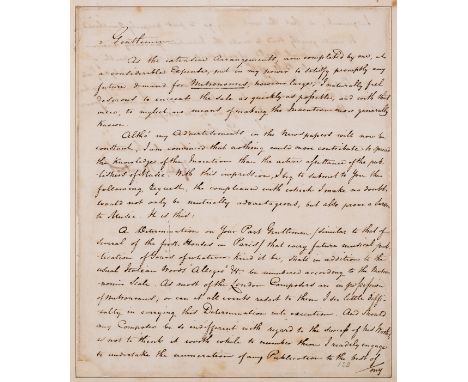 Gentlemen
As the extensive Arrangements, now completed by me, at
a considerable Expence, put in my power to satisfy promptly any
future demand for Metronomes, however large, I naturally feel
desirous to execute the sale as quickly as possible, and with this
view, to neglect no means of making the Invention more generally
known.
Altho' my Advertisements in the Newspapers will now be
constant, I am convinced that nothing could more contribute to spread
the Knowledge of the Invention than the active assistance of the pub-
lishers of Music. With this impression, I beg to submit to You the
following Request, the compliance with which I make no doubt,
would not only be mutually advantageous, but also prove a boon
to Music. It is this:
A Determination on Your Part Gentlemen /similar to that of
several of the first Houses in Paris/ that every future musical pub-
lication of Yours of whatever kind it be, shall in addition to the
usual Italian Words Allegro &c be numbered according to the Metro-
nomic Scale. As most of the London Composers are in possession
of Metronomes, or can at all events resort to them I see little diffi-
culty in carrying this Determination into execution. And should
any Composer be so indifferent with regard to the success of his Works,
as not to think it worth while to number them I readily engage
to undertake the numeration of any Publication to the best of
128
my